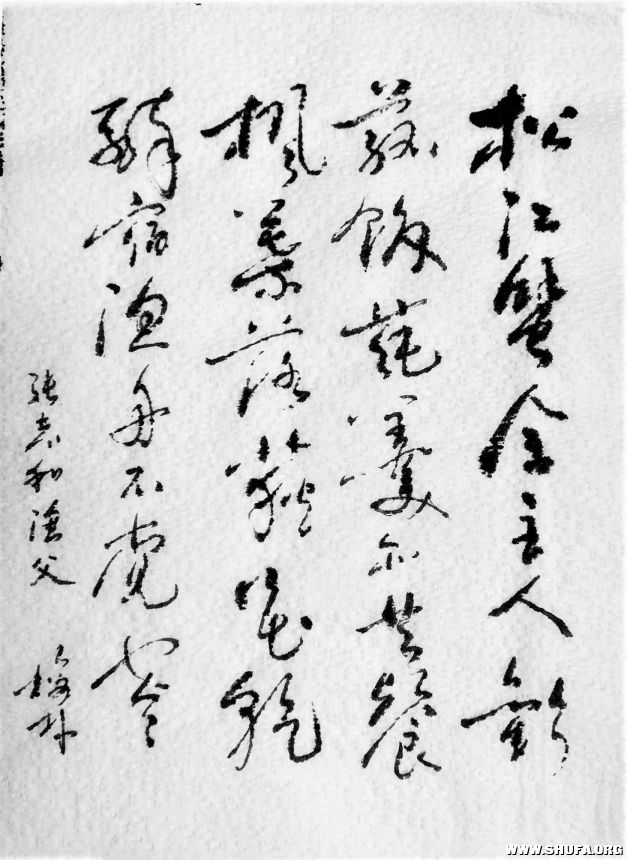 松江蟹舍主人歡
菰飯蓴羹亦共餐
楓葉落荻花乾
醉宿漁舟不覺寒
張志和漁父
WWW.SHUFA.ORG